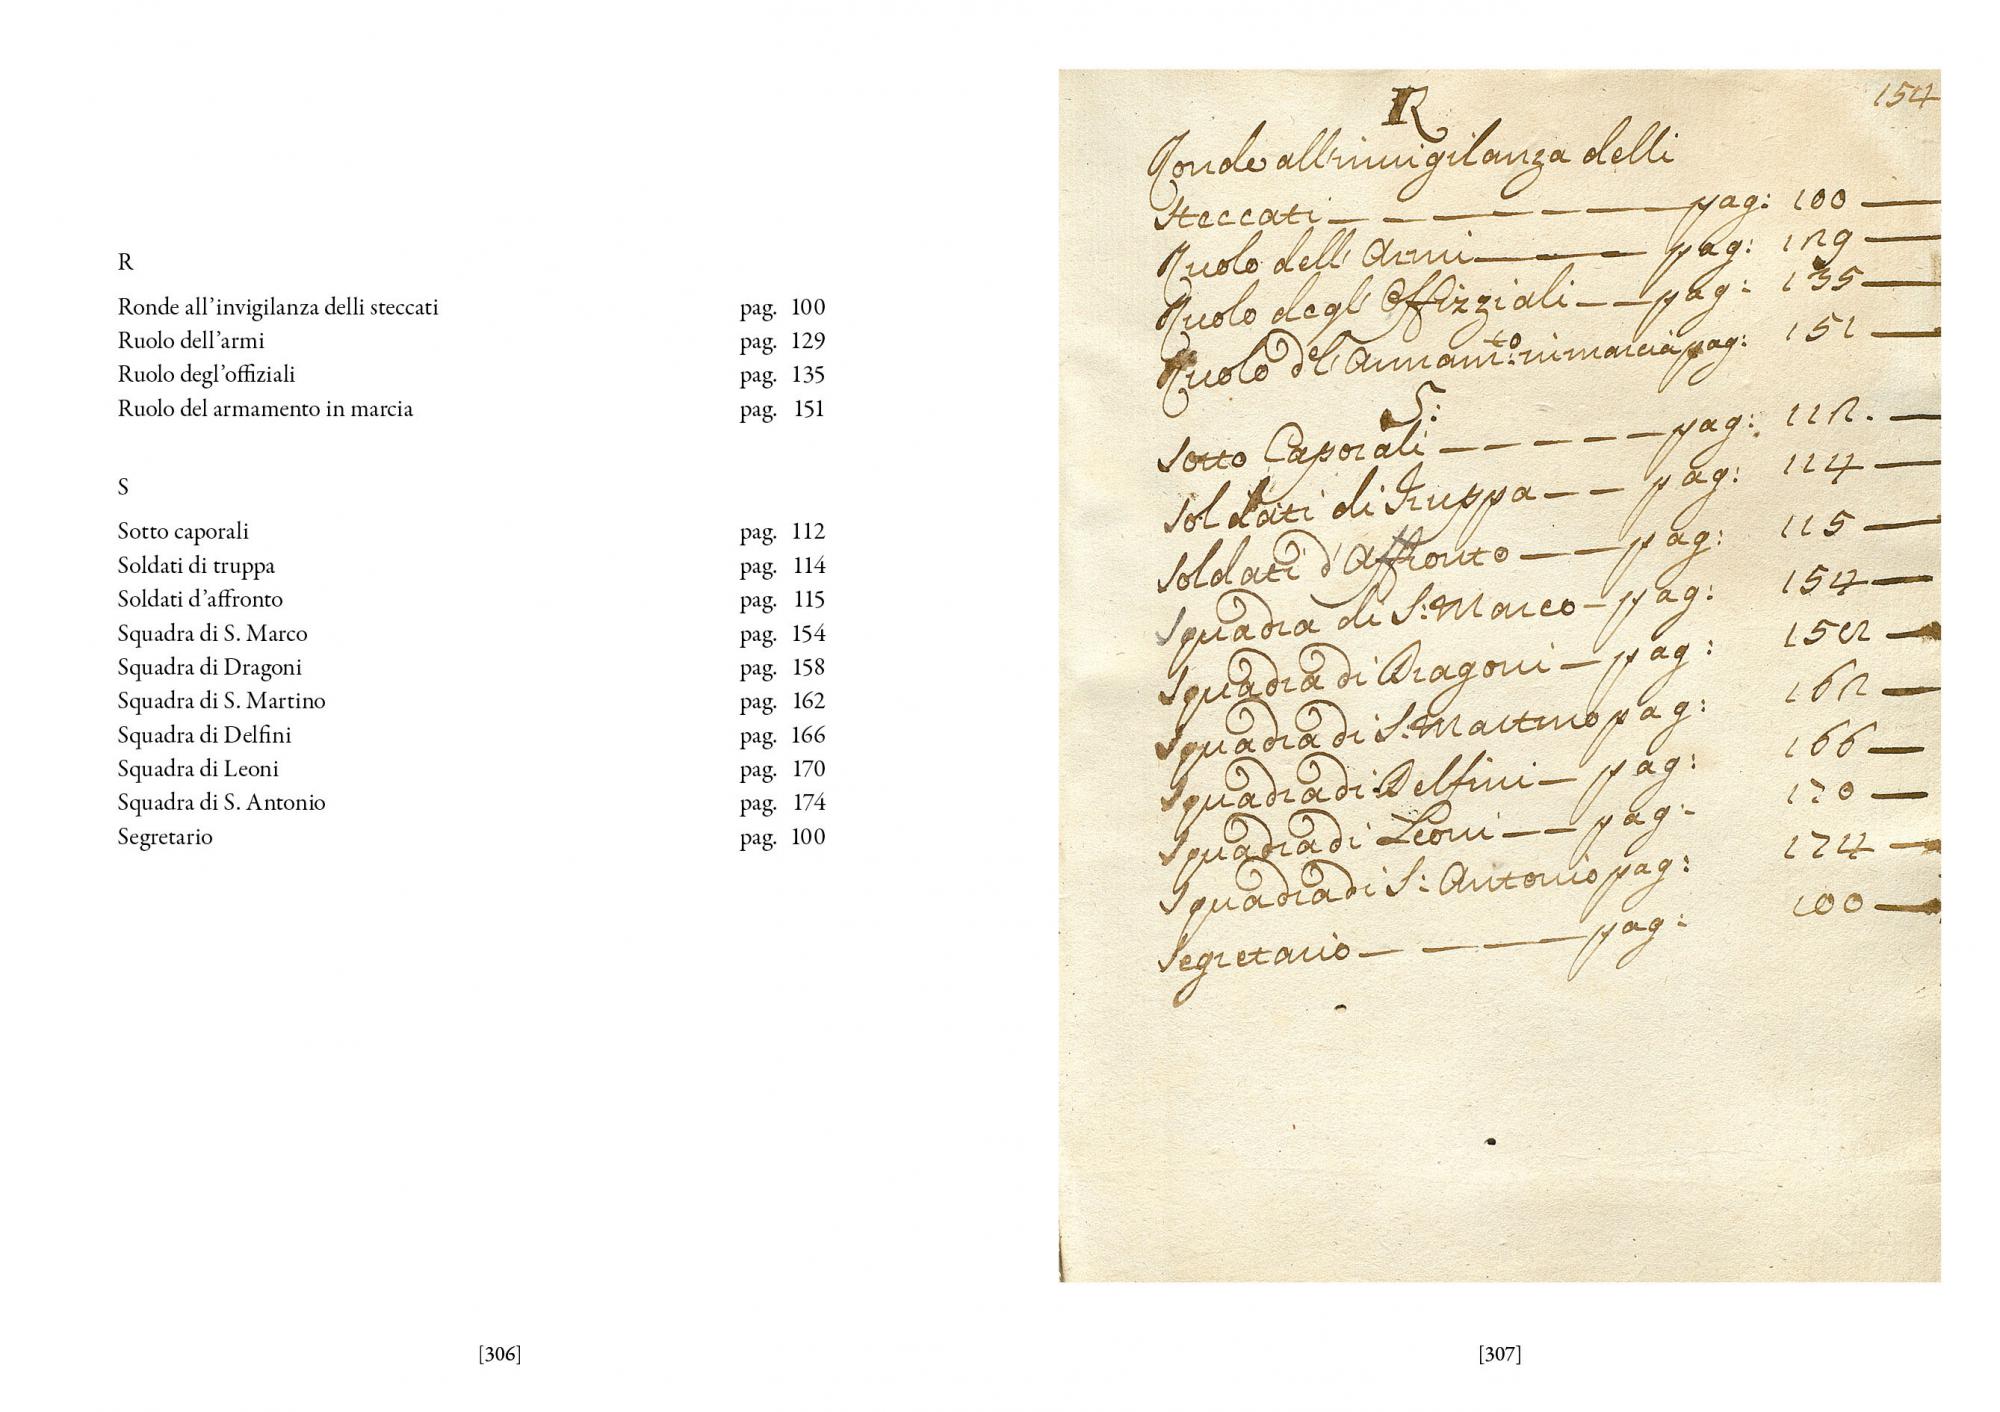 R
Ronde all'invigilanza delli steccati pag. 100
Ruolo dell'armi pag. 129
Ruolo degl'offiziali pag. 135
Ruolo del armamento in marcia pag. 151
S
Sotto caporali pag. 112
Soldati di truppa pag. 114
Soldati d'affronto pag. 115
Squadra di S. Marco pag. 154
Squadra di Dragoni pag. 158
Squadra di S. Martino pag. 162
Squadra di Delfini pag. 166
Squadra di Leoni pag. 170
Squadra di S. Antonio pag. 174
Segretario pag. 100
[306]
154
R
Ronde all'invigilanza delli
steccati — — — — — pag: 100 —
Ruolo dell'Armi — — — pag: 129 —
Ruolo degl'Offizziali — — pag: 135 —
Ruolo del Armam:to in marcia pag: 151 —
S:
Sotto Caporali — — — — — pag: 112. —
Soldati di Truppa — — pag: 114 —
Soldati d'Affronto — — pag: 115 —
Squadra di S: Marco — pag: 154 —
Squadra di Dragoni — pag: 158 —
Squadra di S: Martino pag: 162 —
Squadra di Delfini — pag: 166 —
Squadra di Leoni — — pag: 170 —
Squadra di S: Antonio pag: 174 —
Segretario — — — pag: 100 —
[307]